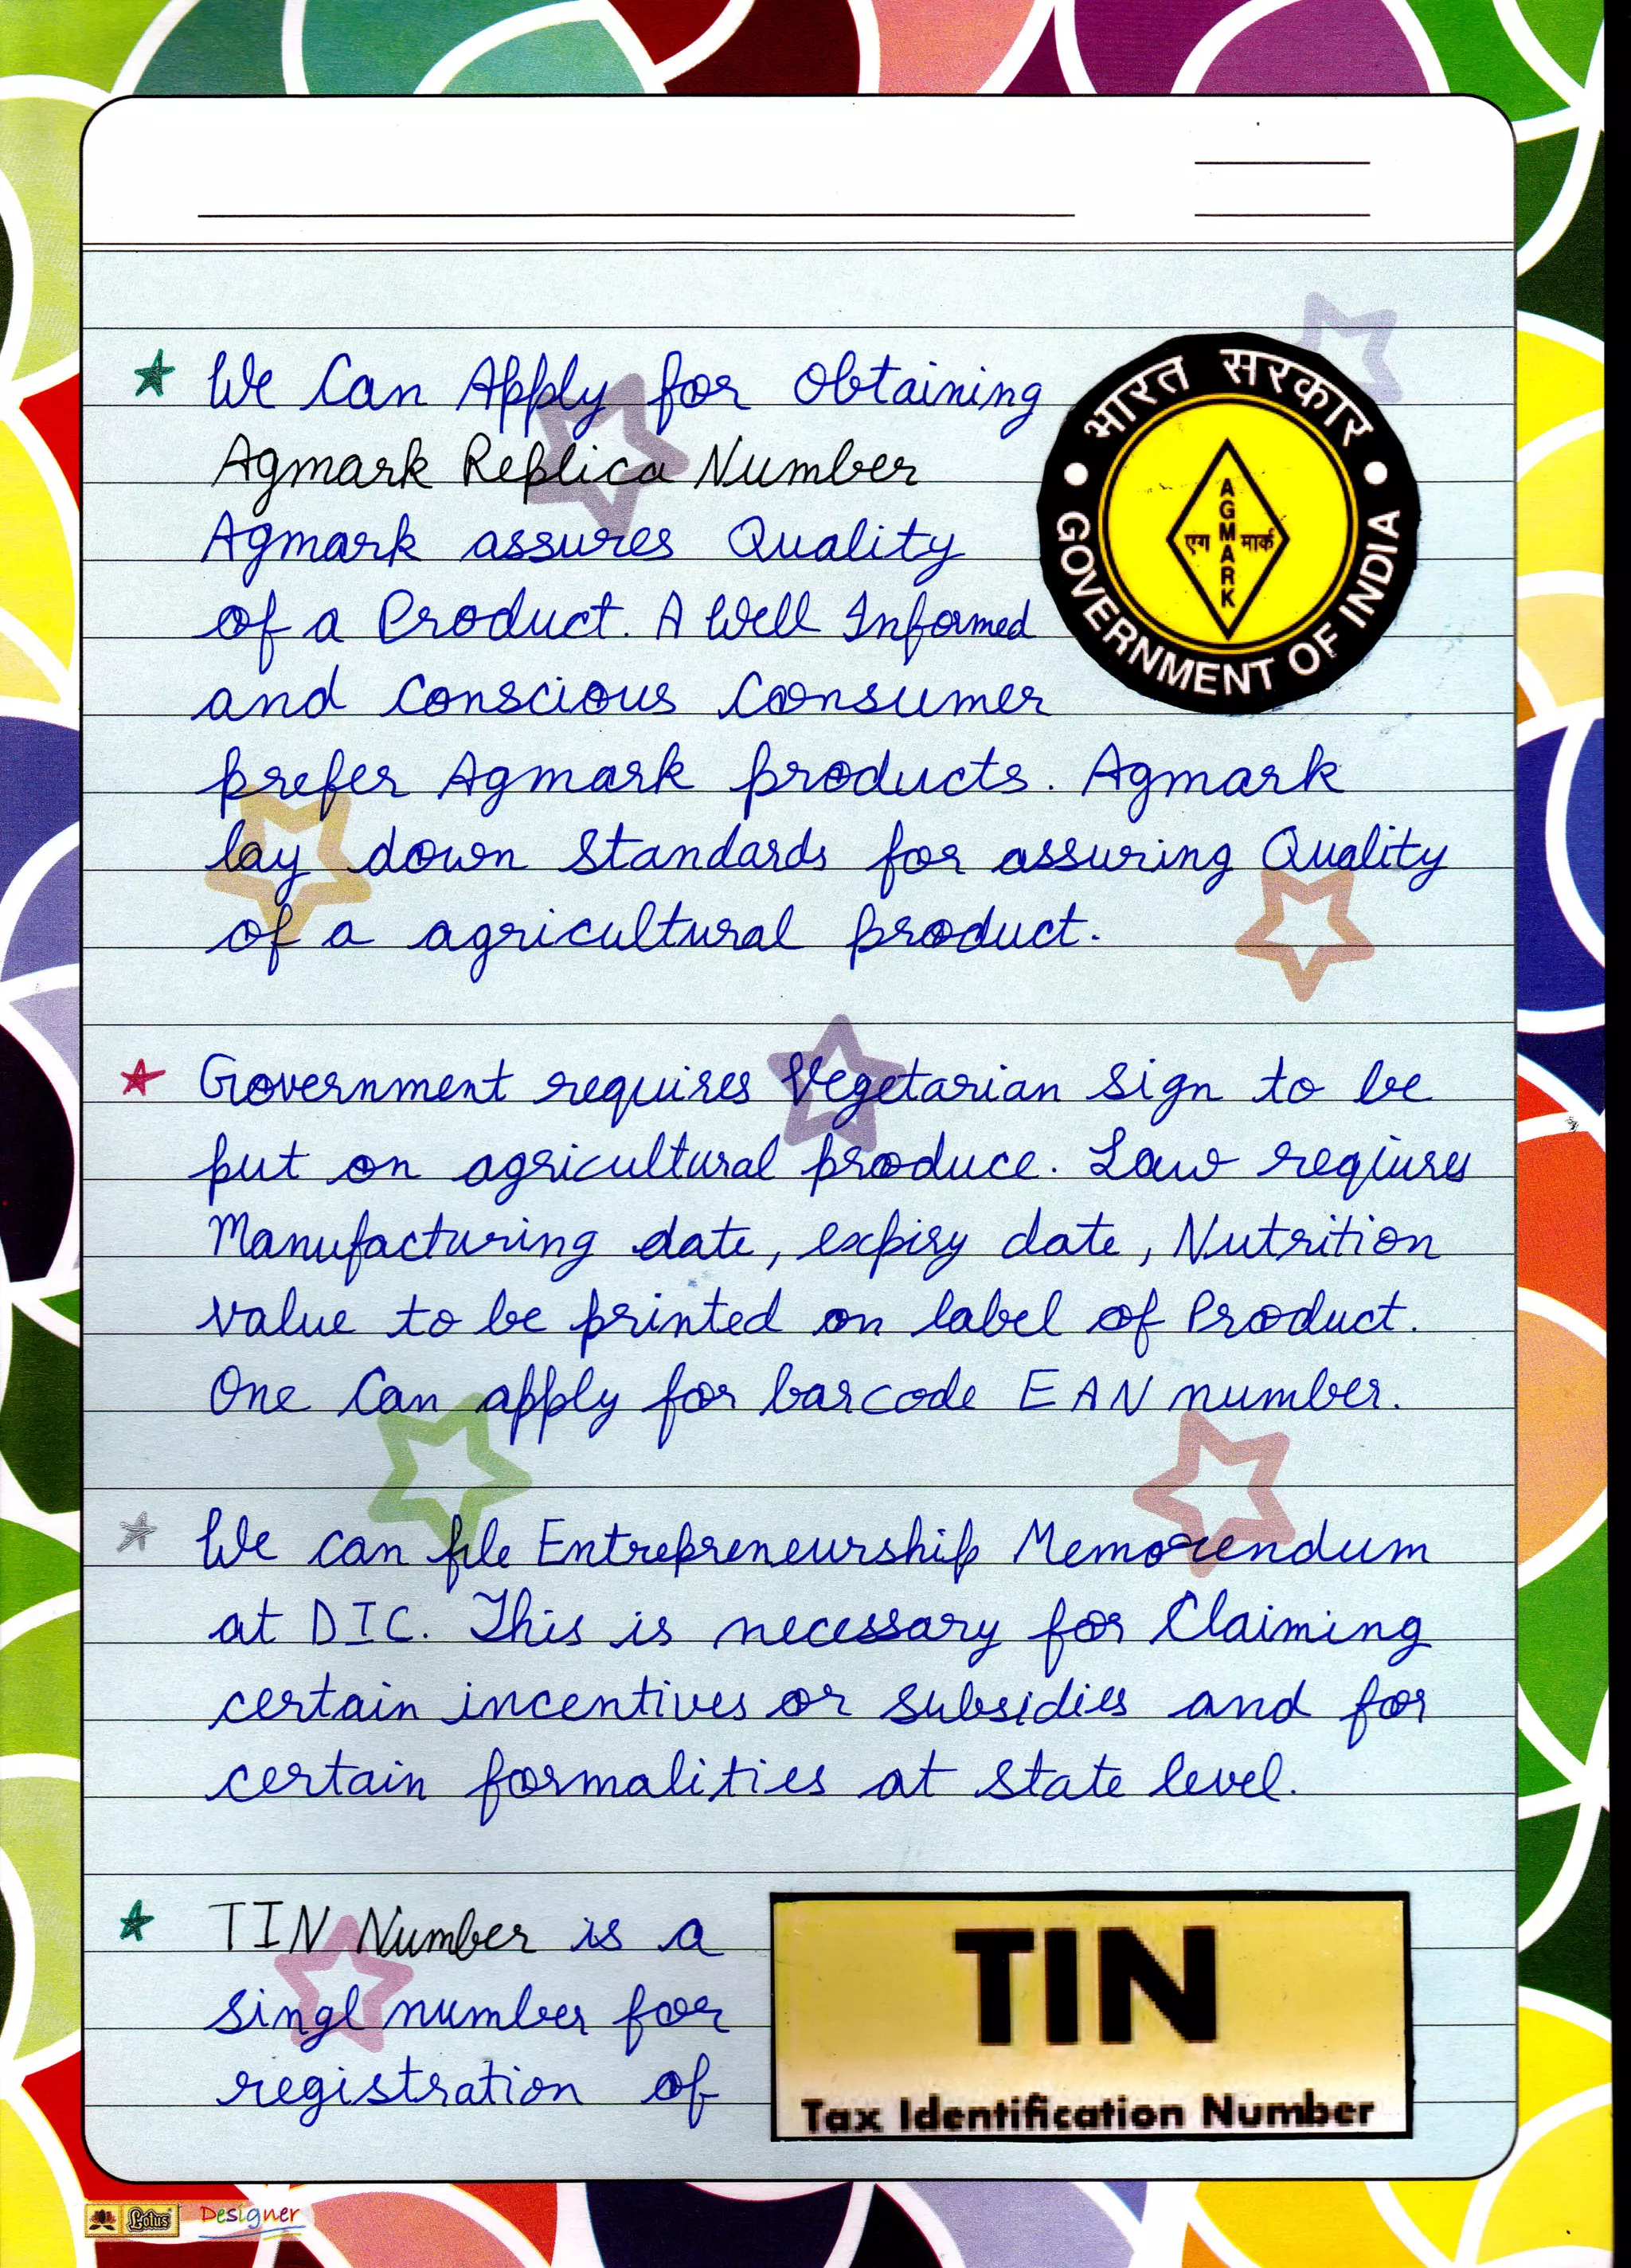 We Can Apply for Obtaining
Agmark Replica Number
Agmark assures Quality
of a Product. A Well Informed
and Conscious Consumer
prefer Agmark products. Agmark
lay down standards for assuring Quality
of a agricultural product.
भारत सरकार
AGMARK
एग मार्क
GOVERNMENT OF INDIA
Government requires Vegetarian sign to be
put on agricultural produce. Law reqiures
Manufacturing date, expiry date, Nutrition
value to be printed on label of Product.
One Can apply for barcode EAN number.
We can file Entrepreneurship Memorendum
at DIC. This is necessary for Claiming
certain incentives or subsidies and for
certain formalities at state level.
TIN Number is a
singl number for
registration of
TIN
Tax Identification Number
Lotus Designer